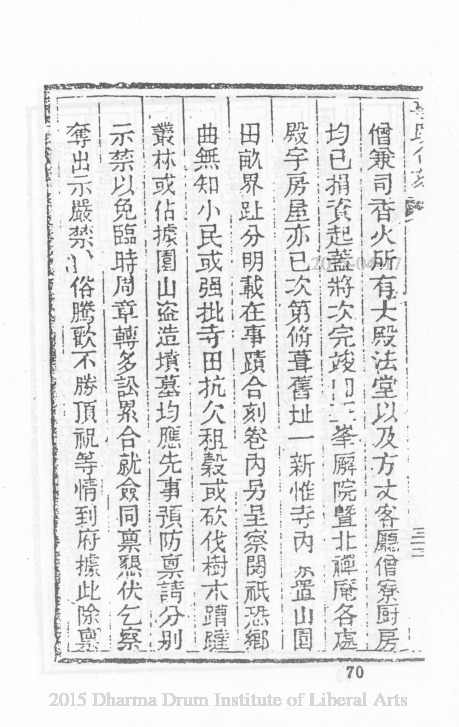 僧兼司香火所有大殿法堂以及方丈客廳僧寮厨房
均已捐資起蓋將次完竣峯廨院暨北禪庵各處
殿宇房屋亦已次第脩葺舊址一新惟寺內置山園
田畝界趾分明載在事蹟合刻卷內另呈察閱祇恐鄉
曲無知小民或强批寺田抗欠租穀或砍伐樹木蹧蹋
叢林或佔據園山盗造墳墓均應先事預防禀請分别
示禁以免臨時周章轉多訟累合就僉同禀懇伏乞察
奪出示嚴禁俗騰歡不勝頂祝等情到府據此除禀
70
2015 Dharma Drum Institute of Liberal Arts